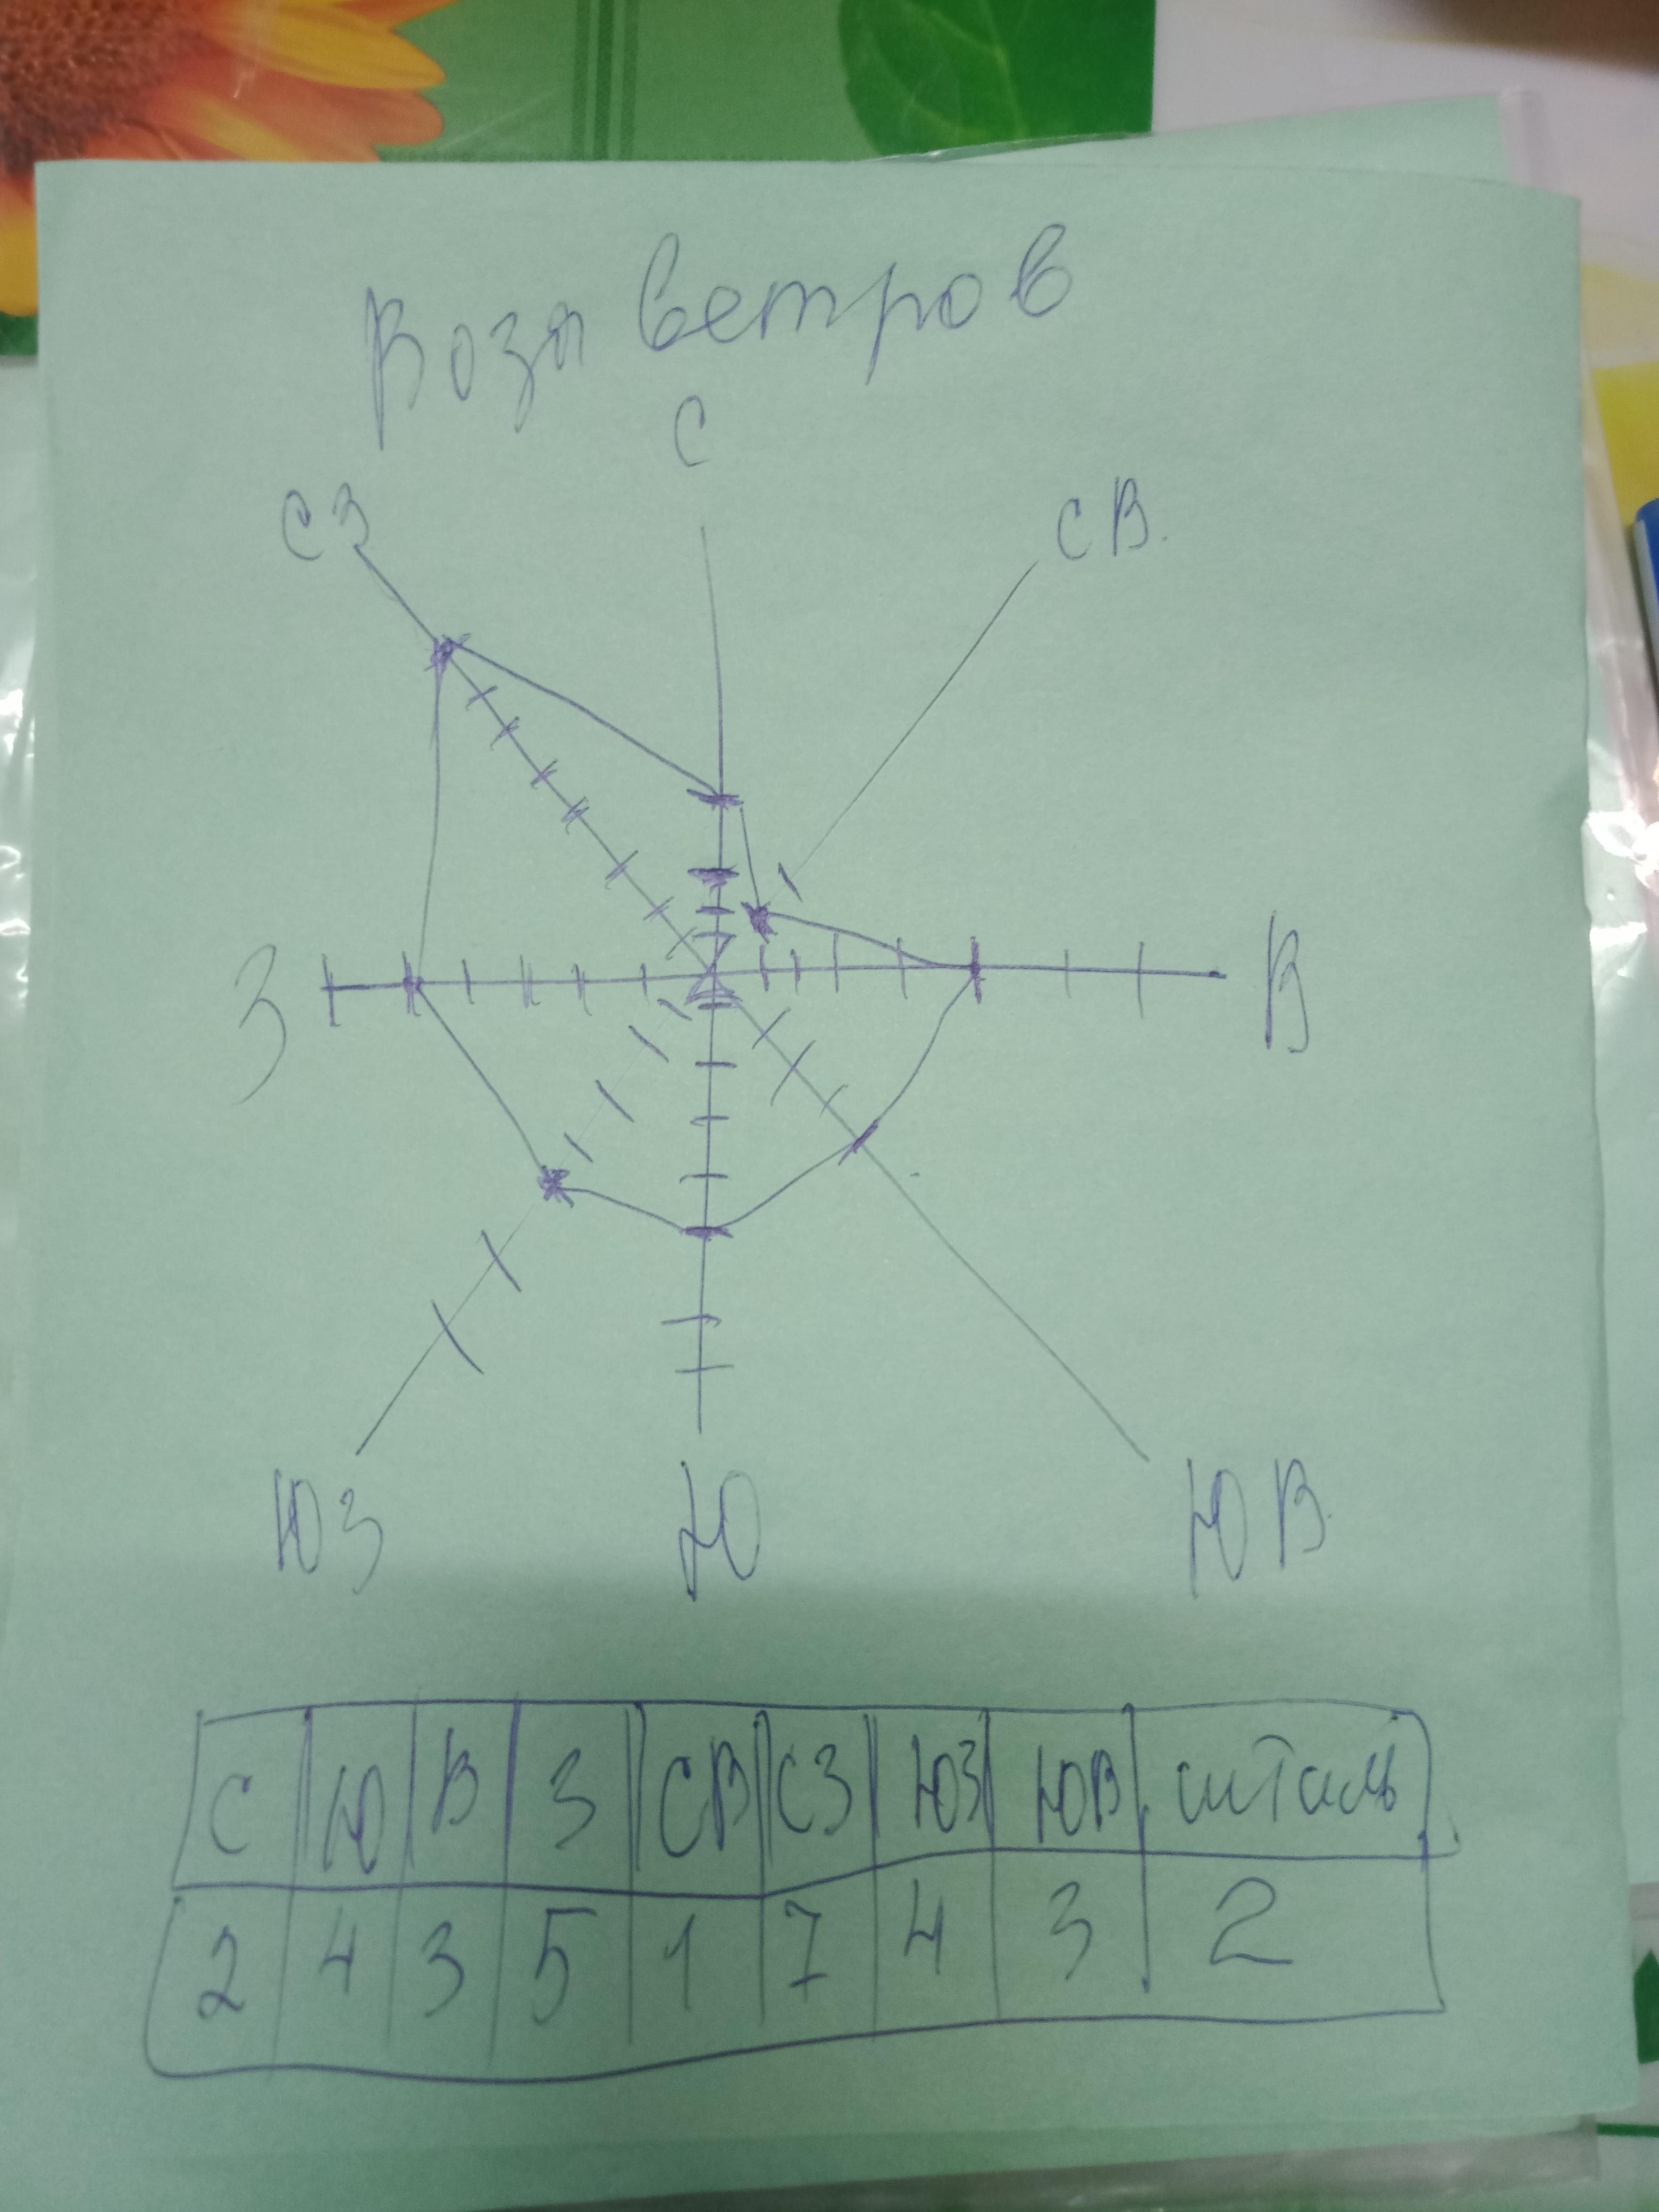 Роза ветров
С
СЗ СВ.
З В
ЮЗ Ю ЮВ.
С Ю В З СВ СЗ ЮЗ ЮВ штиль
2 4 3 5 1 7 4 3 2